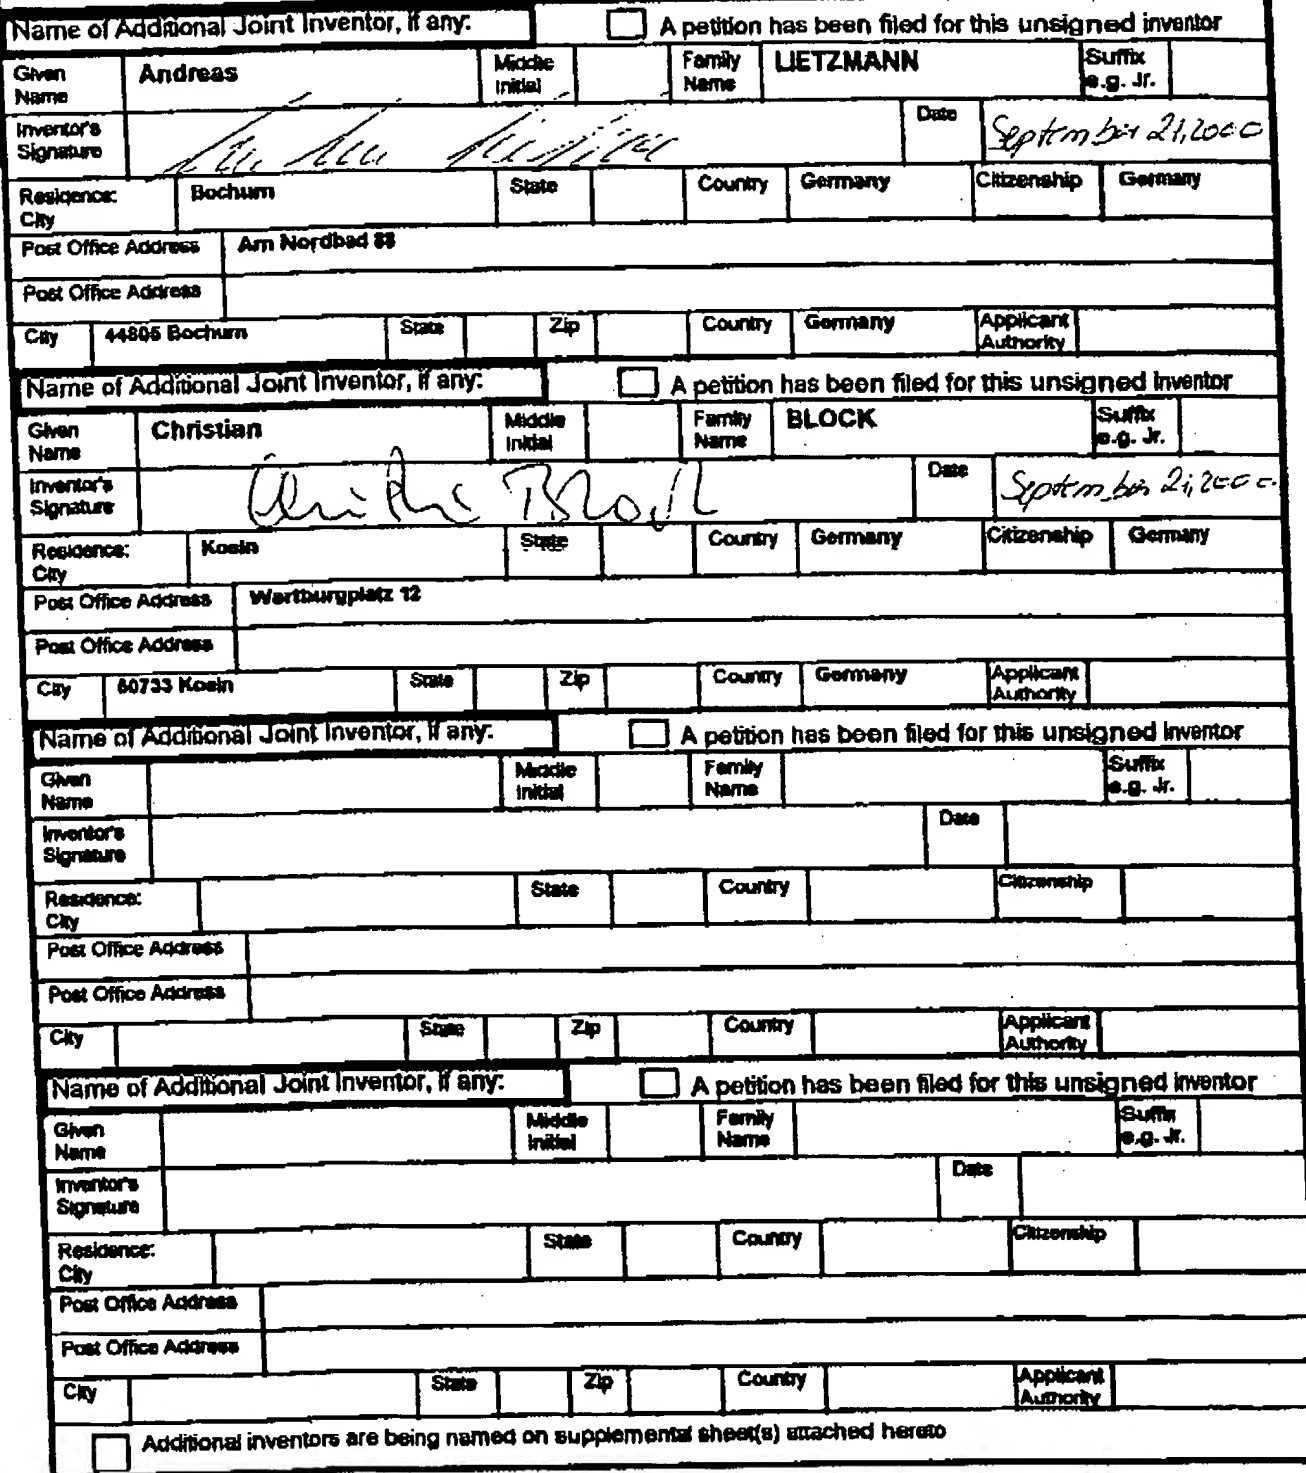 Name of Additional Joint Inventor, if any: A petition has been filed for this unsigned inventor
Given Name Andreas Middle Initial Family Name LIETZMANN Suffix e.g. Jr.
Inventor's Signature Date September 21, 2000
Residence: City Bochum State Country Germany Citizenship Germany
Post Office Address Am Nordbad
Post Office Address
City 44805 Bochum State Zip Country Germany Applicant Authority
Name of Additional Joint Inventor, if any: A petition has been filed for this unsigned inventor
Given Name Christian Middle Initial Family Name BLOCK Suffix e.g. Jr.
Inventor's Signature Christian Block Date September 21, 2000
Residence: City Koeln State Country Germany Citizenship Germany
Post Office Address Wartburgplatz 12
Post Office Address
City 50733 Koeln State Zip Country Germany Applicant Authority
Name of Additional Joint Inventor, if any: A petition has been filed for this unsigned inventor
Given Name Middle Initial Family Name Suffix e.g. Jr.
Inventor's Signature Date
Residence: City State Country Citizenship
Post Office Address
Post Office Address
City State Zip Country Applicant Authority
Name of Additional Joint Inventor, if any: A petition has been filed for this unsigned inventor
Given Name Middle Initial Family Name Suffix e.g. Jr.
Inventor's Signature Date
Residence: City State Country Citizenship
Post Office Address
Post Office Address
City State Zip Country Applicant Authority
Additional inventors are being named on supplemental sheet(s) attached hereto